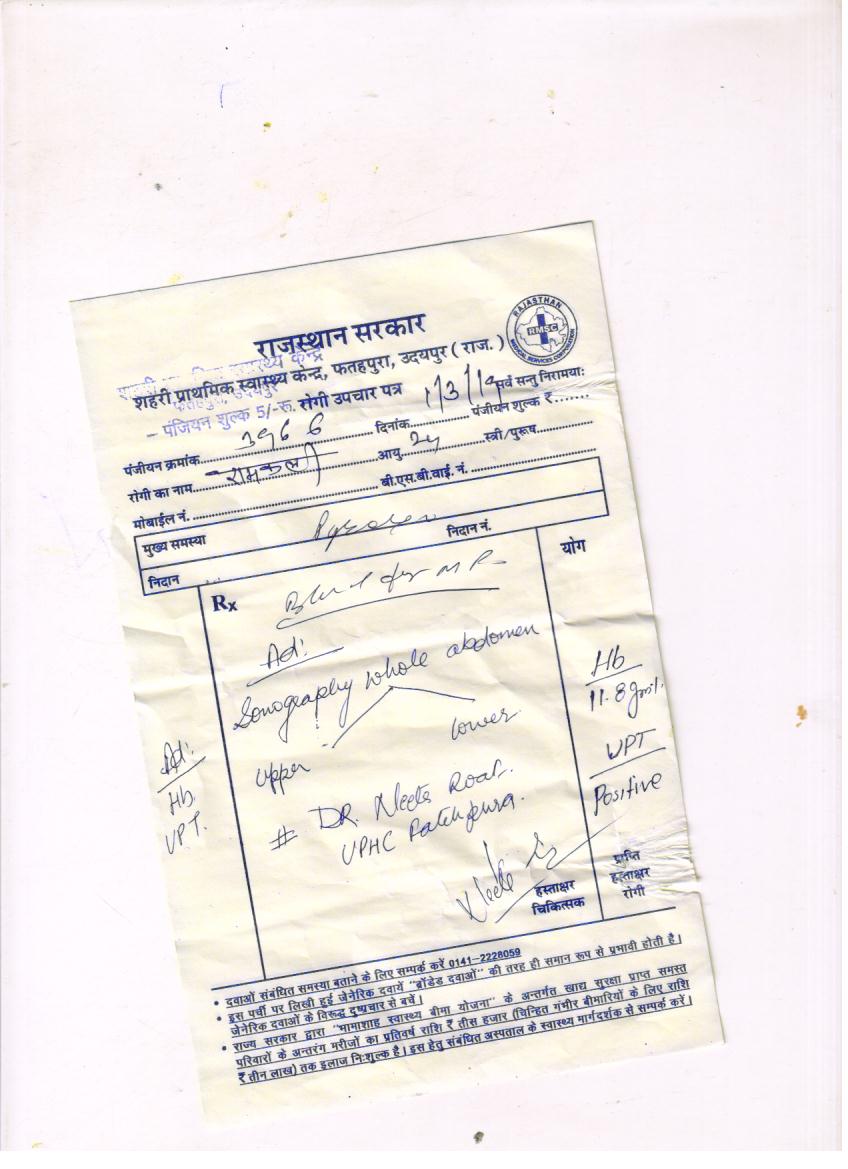 राजस्थान सरकार
RAJASTHAN
RMSC
MEDICAL SERVICES CORPORATION
शहरी प्राथमिक स्वास्थ्य केन्द्र, फतहपुरा, उदयपुर ( राज. )
सर्वे सन्तु निरामयाः
पंजियन शुल्क 5/-रू. रोगी उपचार पत्र
पंजीयन क्रमांक 3966 दिनांक 1/3/19 पंजीयन शुल्क ₹.......
रोगी का नाम रामकली आयु 24 स्त्री/पुरूष
मोबाईल नं. बी.एस.बी.वाई. नं.
मुख्य समस्या
निदान निदान नं.
Rx योग
Ad:
Sonography whole abdomen
upper lower
# DR. Neeta
UPHC Fatehpura.
Ad:
Hb.
UPT.
Hb
11.8 gm%
UPT
Positive
Neeta
हस्ताक्षर
चिकित्सक
प्राप्ति
हस्ताक्षर
रोगी
• दवाओं संबंधित समस्या बताने के लिए सम्पर्क करें 0141-2228059
• इस पर्ची पर लिखी हुई जेनेरिक दवायें "ब्रॉंडेड दवाओं" की तरह ही समान रूप से प्रभावी होती है।
जेनेरिक दवाओं के विरूद्ध दुष्प्रचार से बचें।
• राज्य सरकार द्वारा "भामाशाह स्वास्थ्य बीमा योजना" के अन्तर्गत खाद्य सुरक्षा प्राप्त समस्त
परिवारों के अन्तरंग मरीजों का प्रतिवर्ष राशि ₹ तीस हजार (चिन्हित गंभीर बीमारियों के लिए राशि
₹ तीन लाख) तक इलाज निःशुल्क है। इस हेतु संबंधित अस्पताल के स्वास्थ्य मार्गदर्शक से सम्पर्क करें।